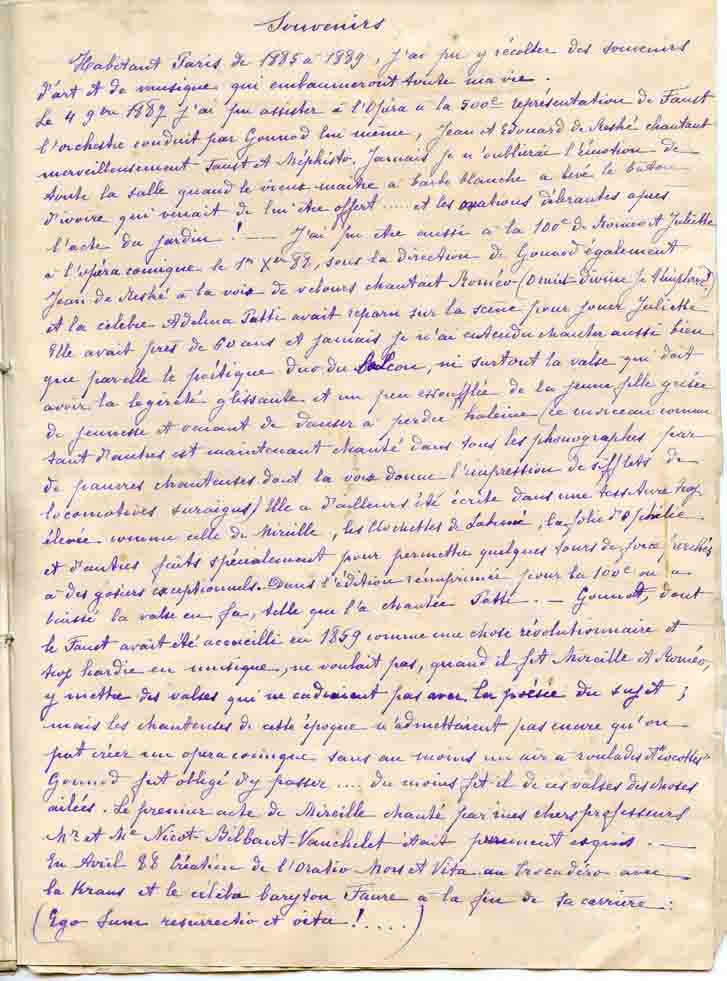 Souvenirs
Habitant Paris de 1885 à 1889, j'ai pu y récolter des souvenirs
d'art et de musique qui embaumeront toute ma vie.
Le 4 9bre 1887 j'ai pu assister à l'Opéra à la 500e représentation de Faust
l'orchestre conduit par Gounod lui même, Jean et Edouard de Reské chantant
merveilleusement Faust et Méphisto. Jamais je n'oublierai l'émotion de
toute la salle quand le vieux maitre à barbe blanche a levé le baton
d'ivoire qui venait de lui être offert .... et les ovations vibrantes après
l'acte du jardin ! — J'ai pu être aussi à la 100e de Roméo et Juliette
à l'opéra comique le 1er Xbre 88, sous la direction de Gounod également
Jean de Reské à la voix de velours chantait Roméo (O nuit divine je t'implore!)
et la célèbre Adelina Patti avait reparu sur la scène pour jouer Juliette
Elle avait près de 60 ans et jamais je n'ai entendu chanter aussi bien
que par elle le poétique duo du Balcon, ni surtout la valse qui doit
avoir la légèreté glissante et un peu essoufflée de la jeune fille grisée
de jeunesse et venant de danser à perdre haleine (ce morceau comme
tant d'autres est maintenant chanté dans tous les phonographes par
de pauvres chanteuses dont la voix donne l'impression de sifflets de
locomotives suraigus) Elle a d'ailleurs été écrite dans une tessiture trop
élevée comme celle de Mireille, les Clochettes de Lakmé, la folie d'Ophélie
et d'autres faits spécialement pour permettre quelques tours de force perchés
à des gosiers exceptionnels. Dans l'édition réimprimée pour la 100e on a
baissé la valse en fa, telle que l'a chantée Patti. — Gounod, dont
le Faust avait été accueilli en 1859 comme une chose révolutionnaire et
trop hardie en musique, ne voulait pas, quand il fit Mireille et Roméo,
y mettre des valses qui ne cadraient pas avec la poésie du sujet ;
mais les chanteuses de cette époque n'admettaient pas encore qu'on
put créer un opera comique sans au moins un air à roulades et "cocottes"
Gounod fut obligé d'y passer .... du moins fit-il de ces valses des choses
ailées. Le premier acte de Mireille chanté par mes chers professeurs
Mr et Me Nicot Bilbaut-Vauchelet était purement exquis. —
En Avril 88 Création de l'Oratio Mors et Vita au Trocadéro avec
la Kraus et le célèbre baryton Faure à la fin de sa carrière :
(Ego Sum resurrectio et vita ! ....)